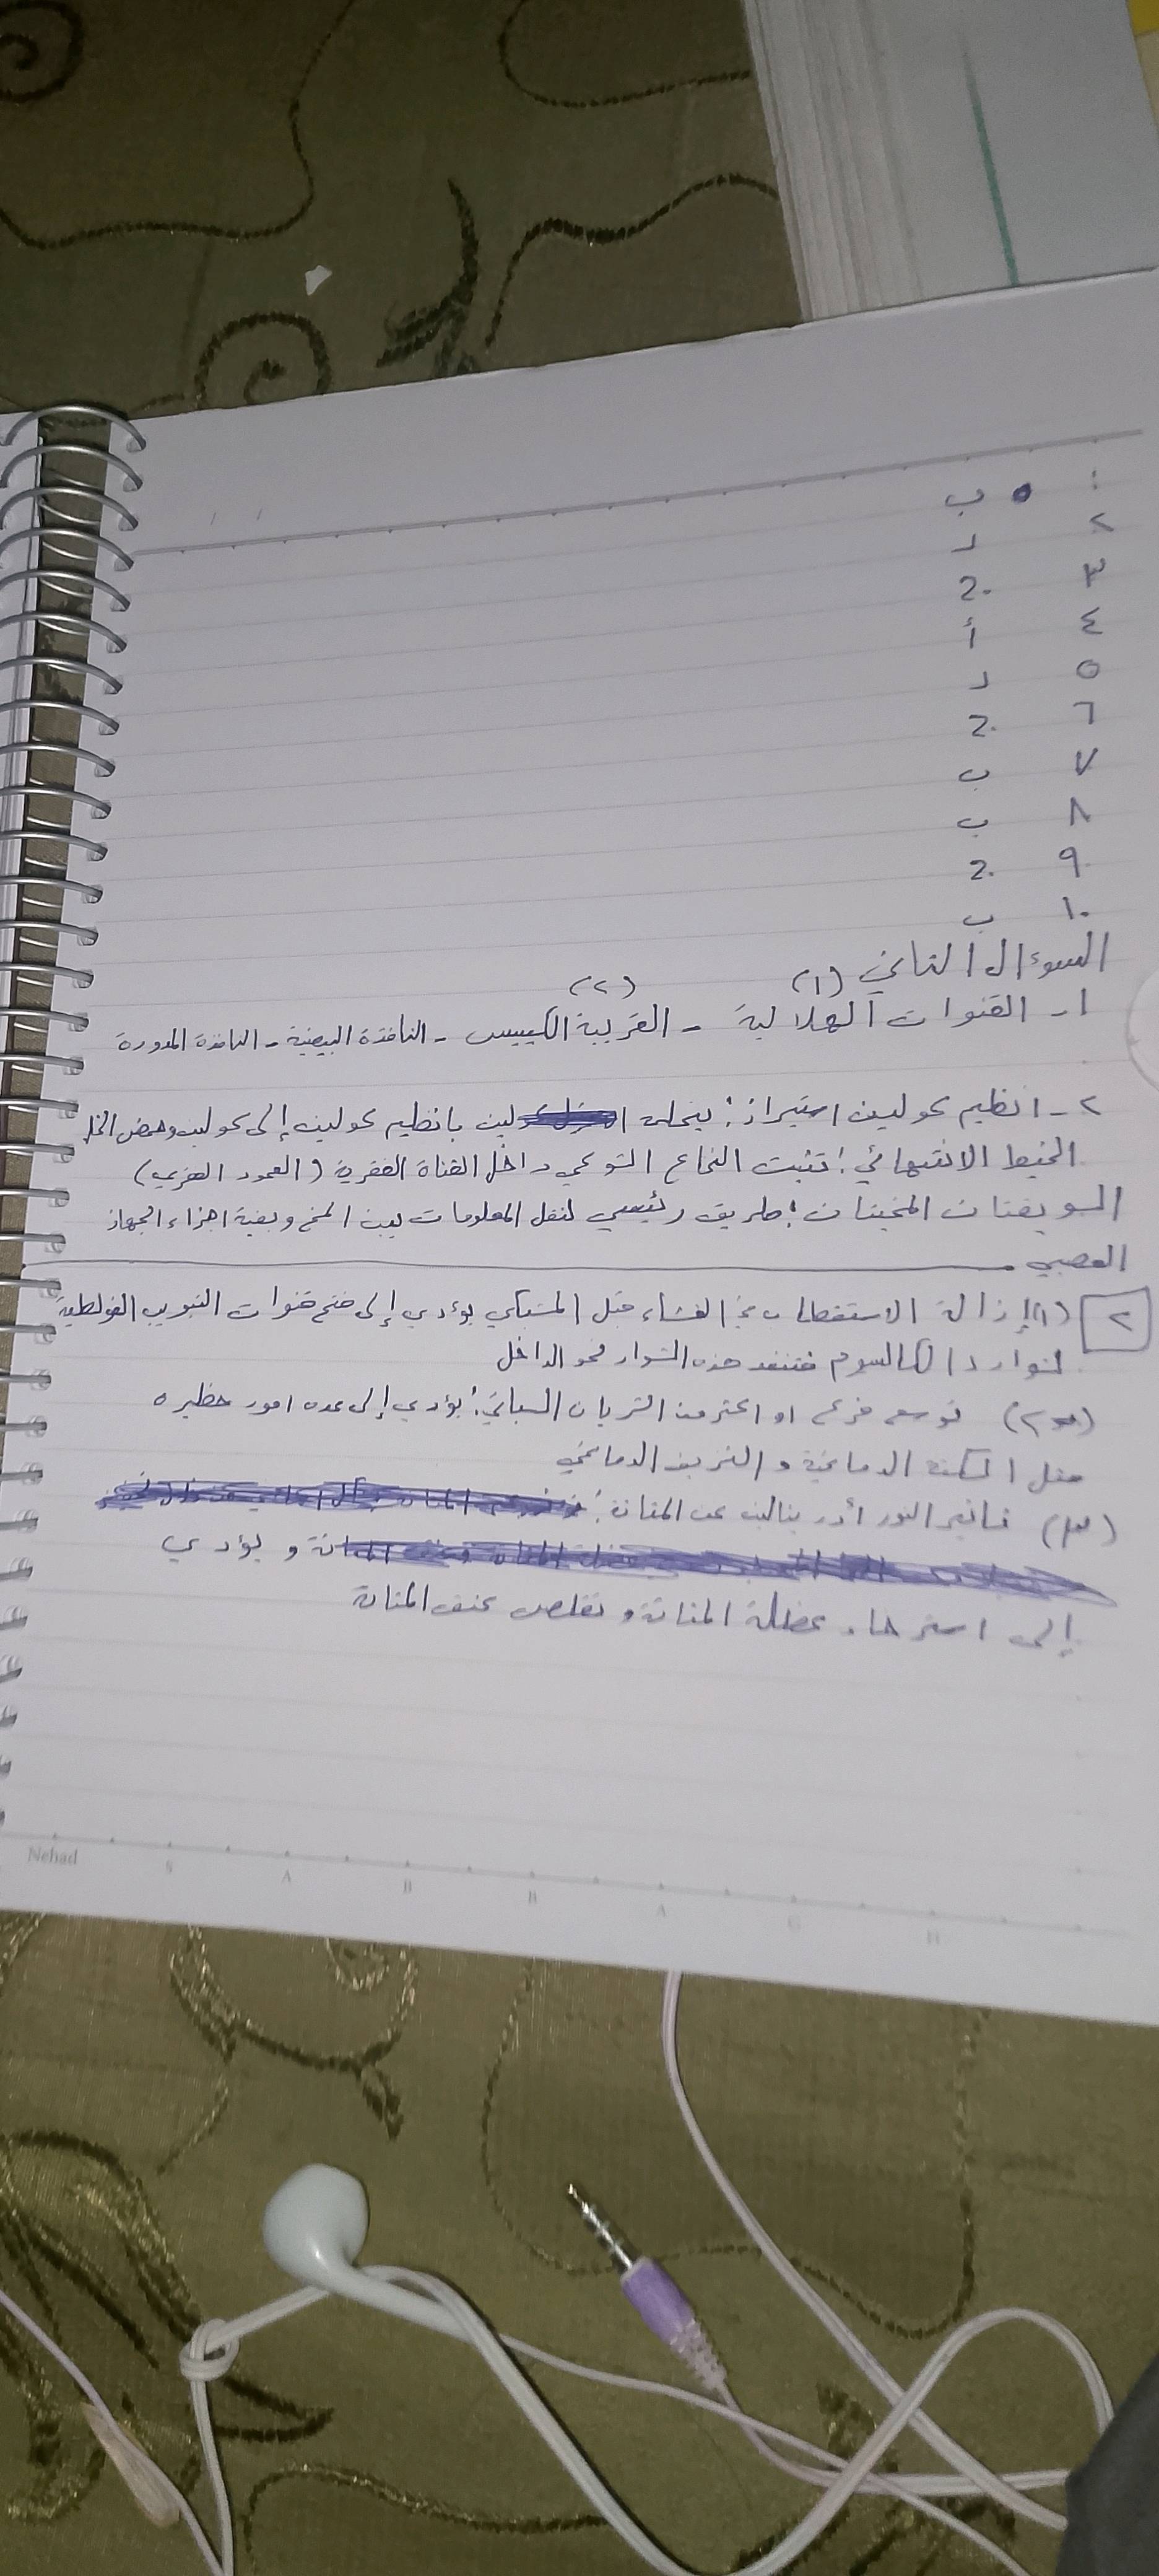 ١ ب
٢ د
٣ ج
٤ أ
٥ د
٦ ج
٧ ب
٨ ب
٩ ج
١٠ ب
السوءال الثاني (١) (٢)
١- القنوات الهلالية - القريبة الكييس - النافذة البيضية - النافذة المدورة
٢- انظيم كولين استيراز: يحلمه كولين بانظيم كولين إلى كولين وحمض الخل
الخيط الانتهائي: تثبت النخاع الشوكي داخل القناة الفقرية (العمود الفقري)
السويقتان المخيتان: طريق رئيسي لنقل المعلومات بين المخ وبقية اجزاء الجهاز
العصبي
٢ (١) إزالة الاستقطاب في الغشاء قبل المشبكي يؤدي إلى فتح قنوات التبويب الفولطية
لشوارد الكالسيوم فتنفذ هذه الشوارد نحو الداخل
(٢) توسع فرع او اكثر من الشريان السباتي: يؤدي إلى عده امور خطيره
مثل السكتة الدماغية و النزيف الدماغي
(٣) تاثير النور أدرينالين على المثانة:
و يؤدي
إلى استرخاء عضلة المثانة و تقلص عنق المثانة
Nehad S A B B A G H